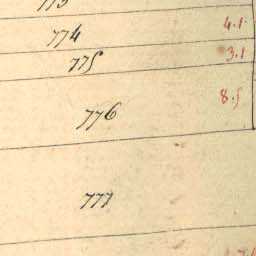 774 4.1
775 3.1
776 8.5
777